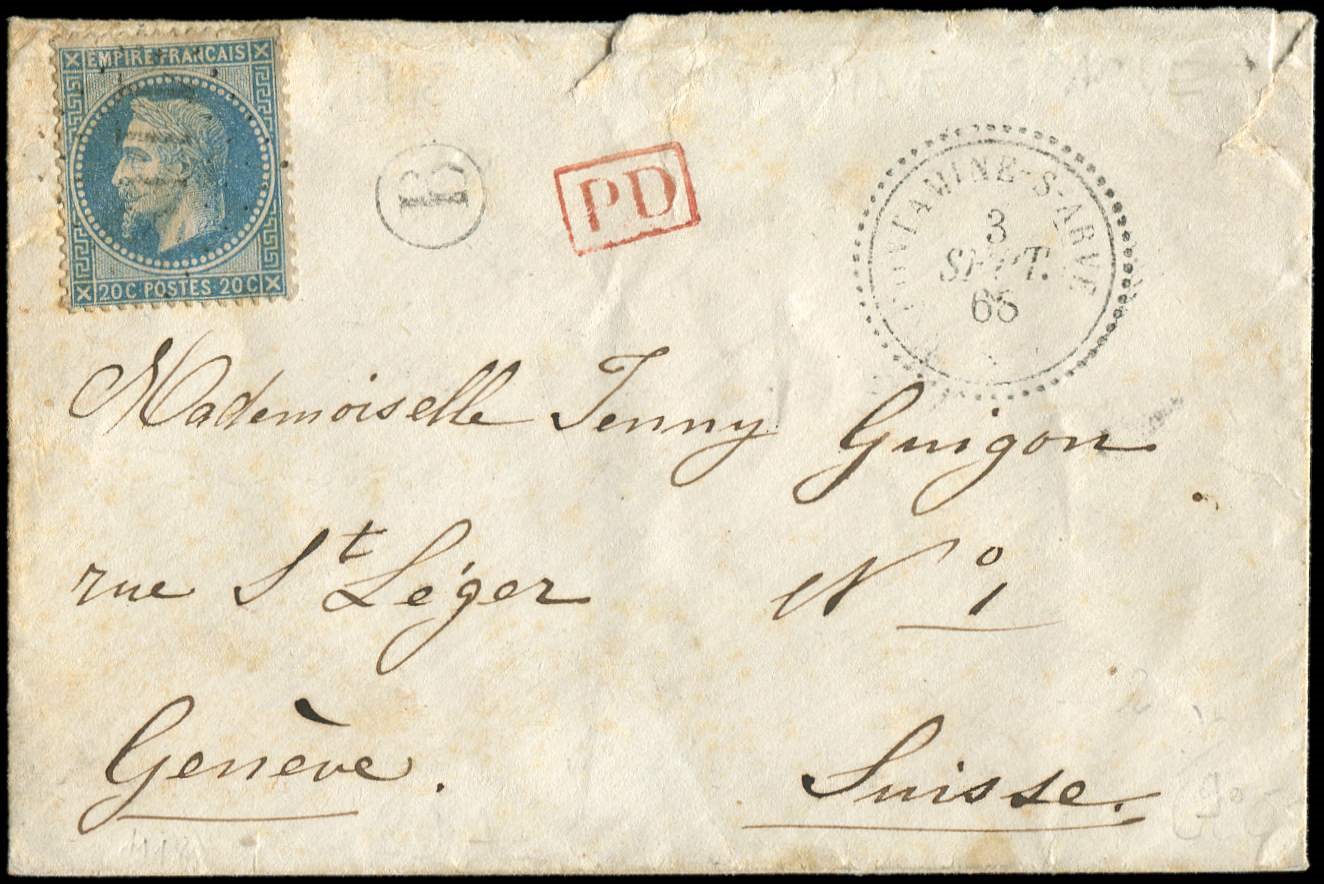 EMPIRE FRANCAIS
20 C POSTES 20 C
B
PD
CONTAMINE-S-ARVE
3
SEPT.
68
Mademoiselle Jenny Guigon
rue St Léger No 1
Genève.
Suisse.